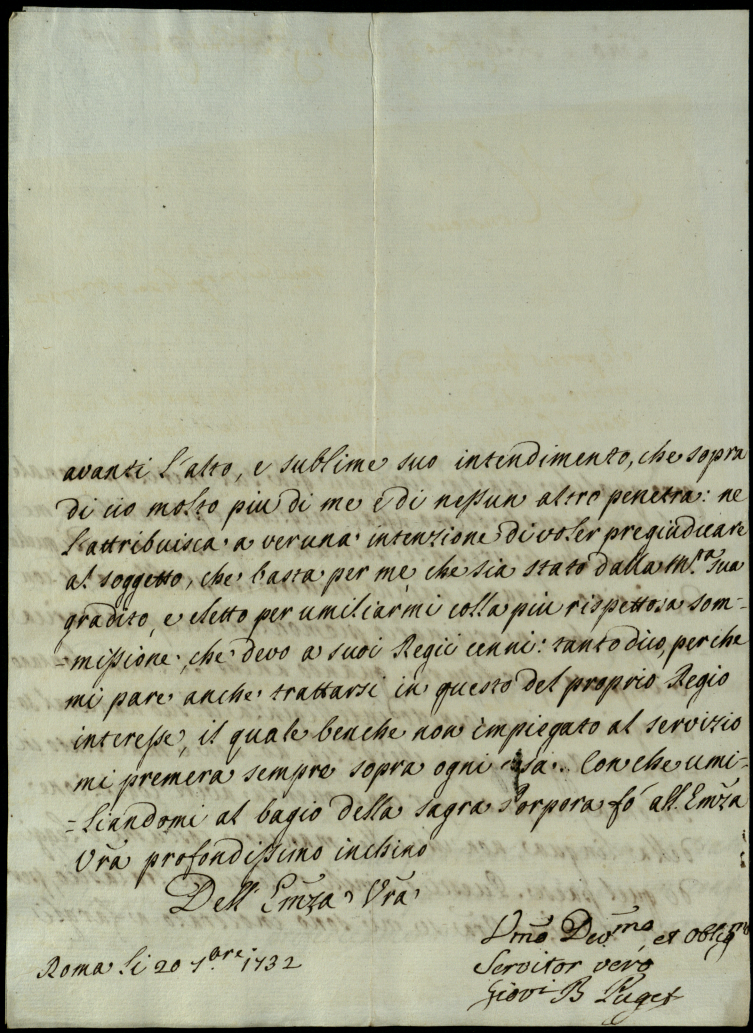 avanti l'alto, e sublime suo intendimento, che sopra
di cio molto piu di me e di nessun altro penetra: ne
l'attribuisca a veruna intenzione di voler pregiudicare
al soggetto, che basta per me che sia stato dalla M.ta sua
gradito, e eletto per umiliarmi colla piu rispettosa som=
=missione, che devo a suoi Regii cenni: tanto dico, perche
mi pare anche trattarsi in questo del proprio Regio
interesse, il quale benche non impiegato al servizio
mi premera sempre sopra ogni cosa. Con che umi=
=liandomi al bagio della sagra Porpora fó all. Emza
Vra profondissimo inchino
Dell' Emza Vra
Vmo Devmo, et Obligmo
Servitor vero
Giovi B Puget
Roma li 20 7bre 1732